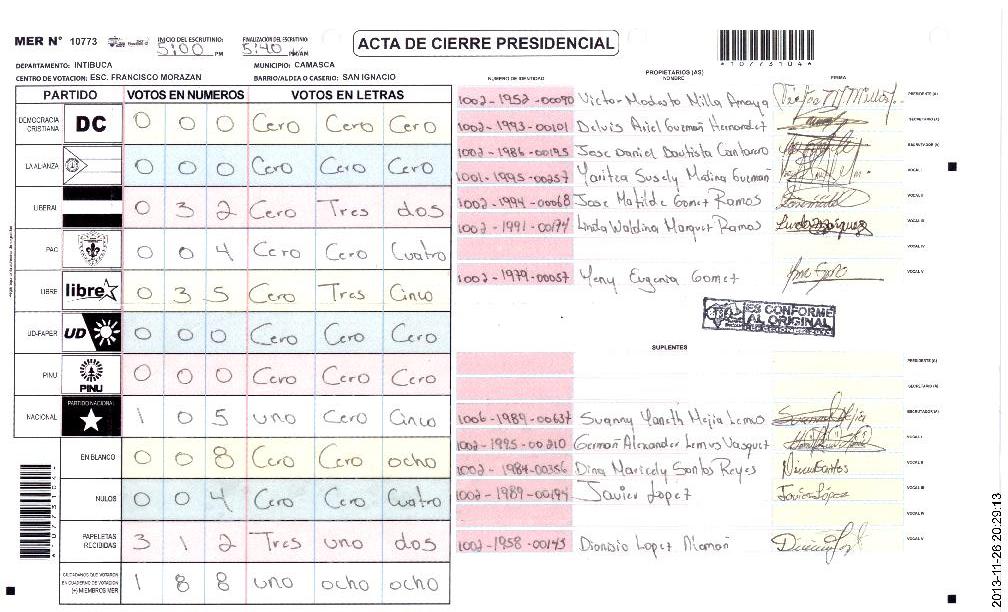 MER Nº 10773 INICIO DEL ESCRUTINIO 5:00 PM FINALIZACIÓN DEL ESCRUTINIO 5:40 PM/AM ACTA DE CIERRE PRESIDENCIAL
DEPARTAMENTO: INTIBUCA MUNICIPIO: CAMASCA
CENTRO DE VOTACION: ESC. FRANCISCO MORAZAN BARRIO/ALDEA O CASERIO: SAN IGNACIO
PARTIDO VOTOS EN NUMEROS VOTOS EN LETRAS
DEMOCRACIA CRISTIANA DC 0 0 0 Cero Cero Cero
LA ALIANZA 0 0 0 Cero Cero Cero
LIBERAL 0 3 2 Cero Tres dos
PAC 0 0 4 Cero Cero Cuatro
LIBRE libre 0 3 5 Cero Tres Cinco
UD-FAPER UD 0 0 0 Cero Cero Cero
PINU PINU 0 0 0 Cero Cero Cero
NACIONAL PARTIDO NACIONAL 1 0 5 uno Cero Cinco
EN BLANCO 0 0 8 Cero Cero ocho
NULOS 0 0 4 Cero Cero Cuatro
PAPELETAS RECIBIDAS 3 1 2 Tres uno dos
CIUDADANOS QUE VOTARON EN CUADERNO DE VOTACION (+) MIEMBROS MER 1 8 8 uno ocho ocho
*10773104*
NUMERO DE IDENTIDAD PROPIETARIOS (AS) NOMBRE FIRMA
1002-1952-00090 Victor Modesto Milla Amaya PRESIDENTE (A)
1002-1993-00101 Delvis Ariel Guzmán Hernandez SECRETARIO (A)
1002-1986-00195 Jose Daniel Bautista Cantarero ESCRUTADOR (A)
1001-1995-00257 Yaritza Susely Molina Guzmán VOCAL I
1002-1994-00068 Jose Matilde Gomez Ramos VOCAL II
1002-1991-00174 Linda Waldina Marquez Ramos VOCAL III
VOCAL IV
1002-1979-00057 Yeny Eugenia Gomez VOCAL V
ES CONFORME
AL ORIGINAL
SUPLENTES
PRESIDENTE (A)
SECRETARIO (A)
1006-1989-00637 Suanny Yaneth Mejia Lemus ESCRUTADOR (A)
1002-1995-00210 Germán Alexander Lemus Vasquez VOCAL I
1002-1984-00356 Dina Maricely Santos Reyes VOCAL II
1002-1989-00194 Javier Lopez Javier López VOCAL III
VOCAL IV
1002-1958-00145 Dionisio Lopez Alemán VOCAL V
2013-11-26 20:29:13